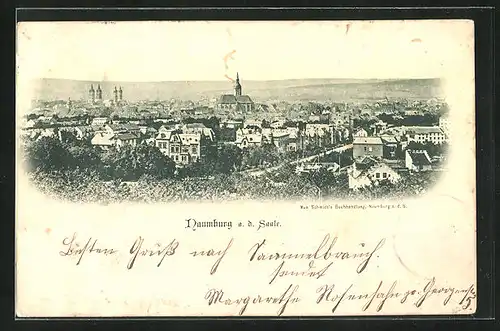 Max Schmidt's Buchhandlung, Naumburg a. d. S.
Naumburg a. d. Saale.
Besten Gruß nach Sammelbrauch,
sendet
Margarethe Rosenhahn Georgenstr
5